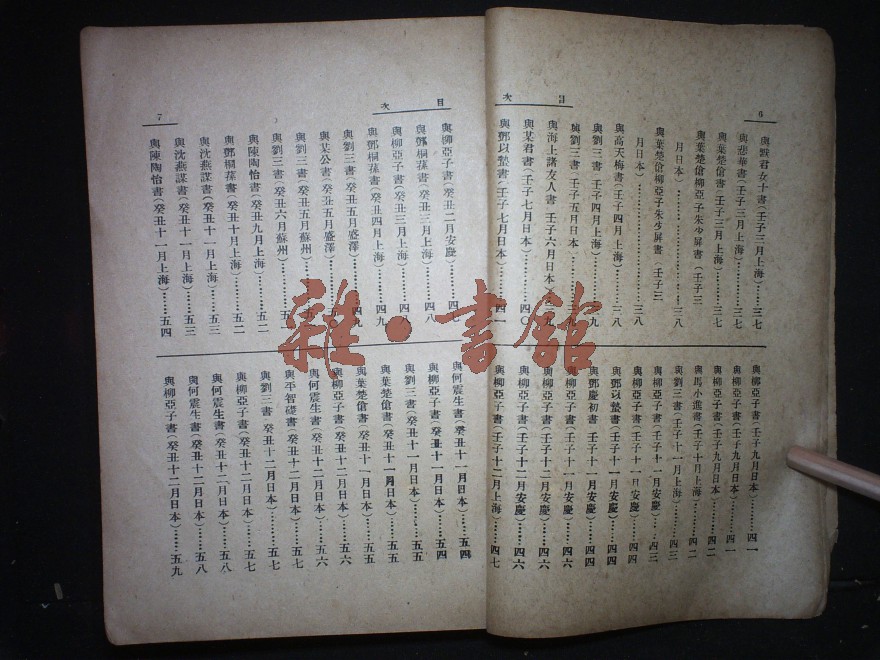 6
目次
與默君女士書(壬子三月上海)……三七
與悲華書(壬子三月上海)……三七
與葉楚傖書(壬子三月上海)……三七
與葉楚傖柳亞子朱少屏書(壬子三
月日本)……三八
與葉楚傖柳亞子朱少屏書(壬子三
月日本)……三八
與高天梅書(壬子四月上海)……三八
與劉三書(壬子四月上海)……三九
與劉三書(壬子五月日本)……三九
與海上諸友人書(壬子六月日本)……三九
與某君書(壬子七月日本)……四〇
與鄧以蟄書(壬子七月日本)……四一
與柳亞子書(壬子九月日本)……四一
與柳亞子書(壬子九月日本)……四一
與柳亞子書(壬子九月日本)……四二
與馬小進書(壬子十月上海)……四二
與劉三書(壬子十一月上海)……四三
與柳亞子書(壬子十一月安慶)……四三
與柳亞子書(壬子十一月安慶)……四四
與鄧以蟄書(壬子十一月安慶)……四四
與鄧慶初書(壬子十一月安慶)……四四
與柳亞子書(壬子十二月安慶)……四六
與柳亞子書(壬子十二月安慶)……四六
與柳亞子書(壬子十二月安慶)……四六
與柳亞子書(壬子十二月上海)……四七
目次
7
與柳亞子書(癸丑二月安慶)……四七
與鄧桐蓀書(癸丑三月上海)……四八
與柳亞子書(癸丑三月上海)……四八
與鄧桐蓀書(癸丑四月上海)……四九
與劉三書(癸丑五月盛澤)……四九
與某公書(癸丑五月盛澤)
與劉三書(癸丑五月蘇州)
與劉三書(癸丑六月蘇州)……五一
與陳陶怡書(癸丑九月上海)……五二
與鄧桐蓀書(癸丑十月上海)……五二
與沈燕謀書(癸丑十一月上海)……五三
與沈燕謀書(癸丑十一月上海)……五三
與陳陶怡書(癸丑十一月上海)……五四
與何震生書(癸丑十一月日本)……五四
與柳亞子書(癸丑十一月日本)……五四
與劉三書(癸丑十一月日本)……五五
與葉楚傖書(癸丑十一月日本)……五五
與葉楚傖書(癸丑十一月日本)……五五
與柳亞子書(癸丑十二月日本)……五六
與何震生書(癸丑十二月日本)……五六
與平智礎書(癸丑十二月日本)……五七
與劉三書(癸丑十二月日本)……五七
與柳亞子書(癸丑十二月日本)……五七
與何震生書(癸丑十二月日本)……五八
與何震生書(癸丑十二月日本)……五八
與柳亞子書(癸丑十二月日本)……五九
雜·書館